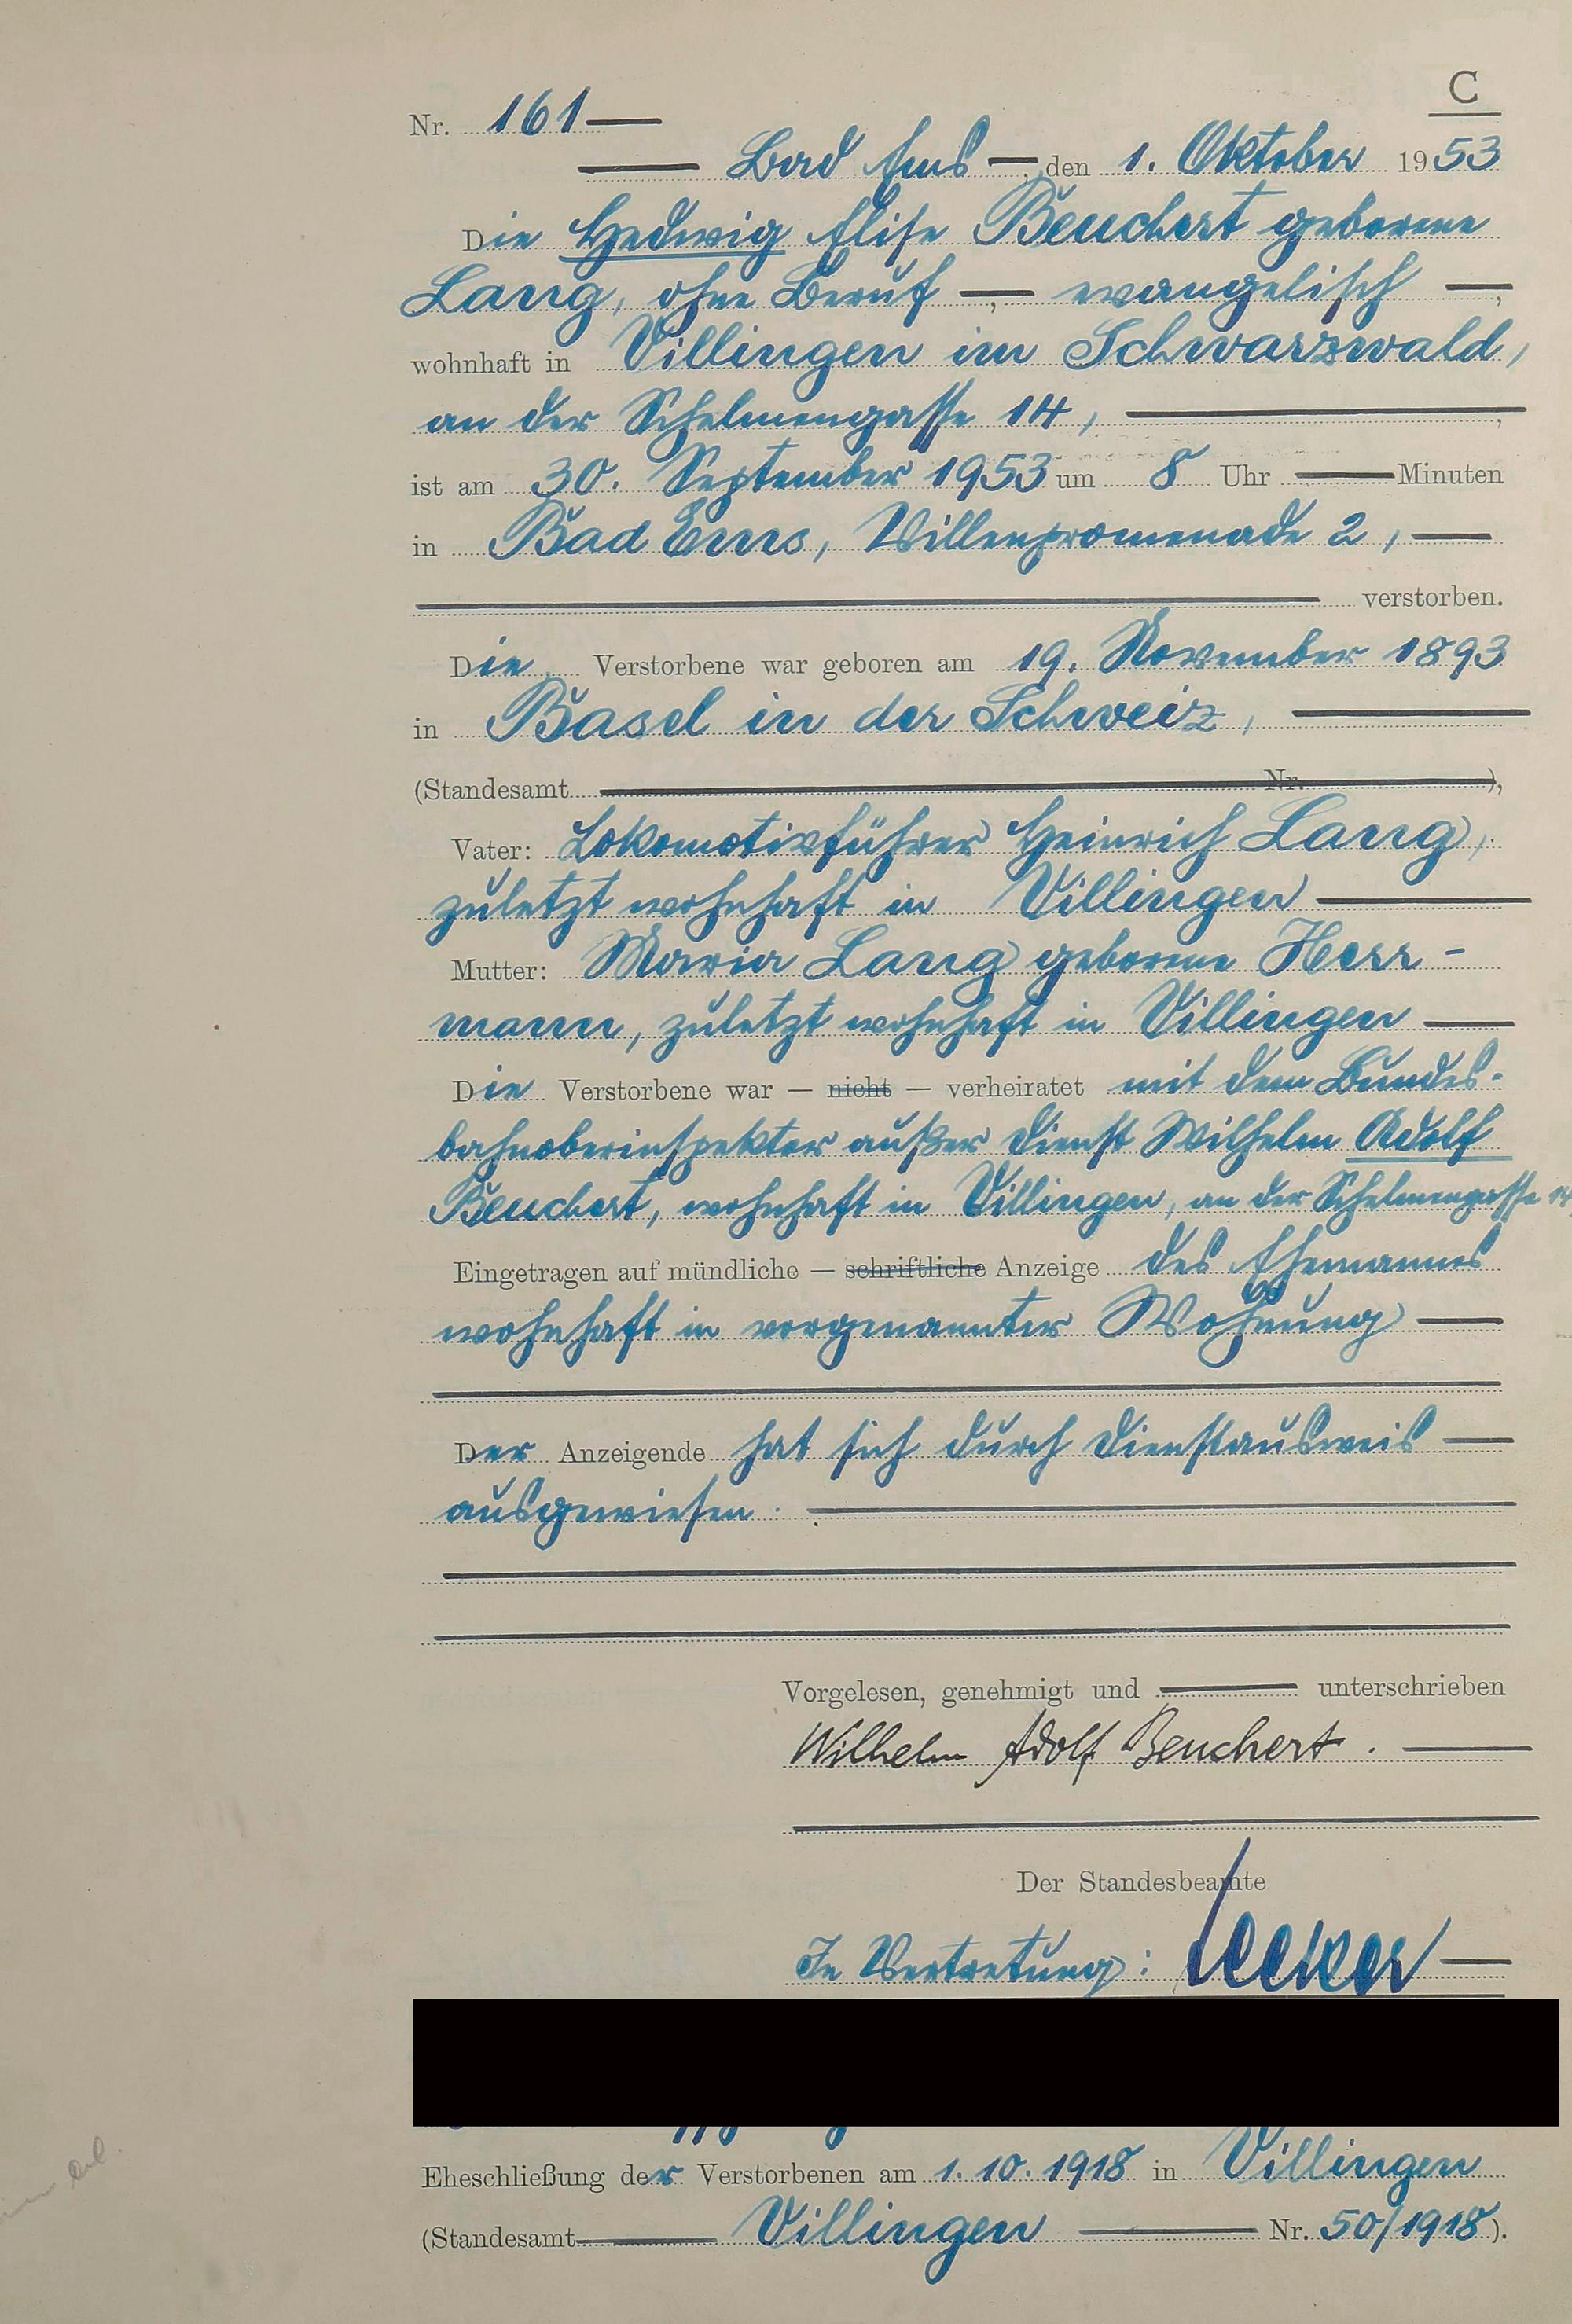 C
Nr. 161
Bad Ems, den 1. Oktober 1953
Die Hedwig Elise Beuchert geborene
Lang, ohne Beruf —, evangelisch —,
wohnhaft in Villingen im Schwarzwald,
an der Schelmengasse 14,
ist am 30. September 1953 um 8 Uhr — Minuten
in Bad Ems, Villenpromenade 2, —
verstorben.
Die Verstorbene war geboren am 19. November 1893
in Basel in der Schweiz,
(Standesamt Nr. ),
Vater: Lokomotivführer Heinrich Lang,
zuletzt wohnhaft in Villingen
Mutter: Maria Lang geborene Herr-
mann, zuletzt wohnhaft in Villingen
Die Verstorbene war — nicht — verheiratet mit dem Bundes-
bahnoberinspektor außer Dienst Wilhelm Adolf
Beuchert, wohnhaft in Villingen, an der Schelmengasse 14,
Eingetragen auf mündliche — schriftliche Anzeige des Ehemannes
wohnhaft in vorgenannter Wohnung
Der Anzeigende hat sich durch Dienstausweis
ausgewiesen.
Vorgelesen, genehmigt und — unterschrieben
Wilhelm Adolf Beuchert.
Der Standesbeamte
In Vertretung:
Eheschließung der Verstorbenen am 1.10.1918 in Villingen
(Standesamt Villingen Nr. 50/1918).